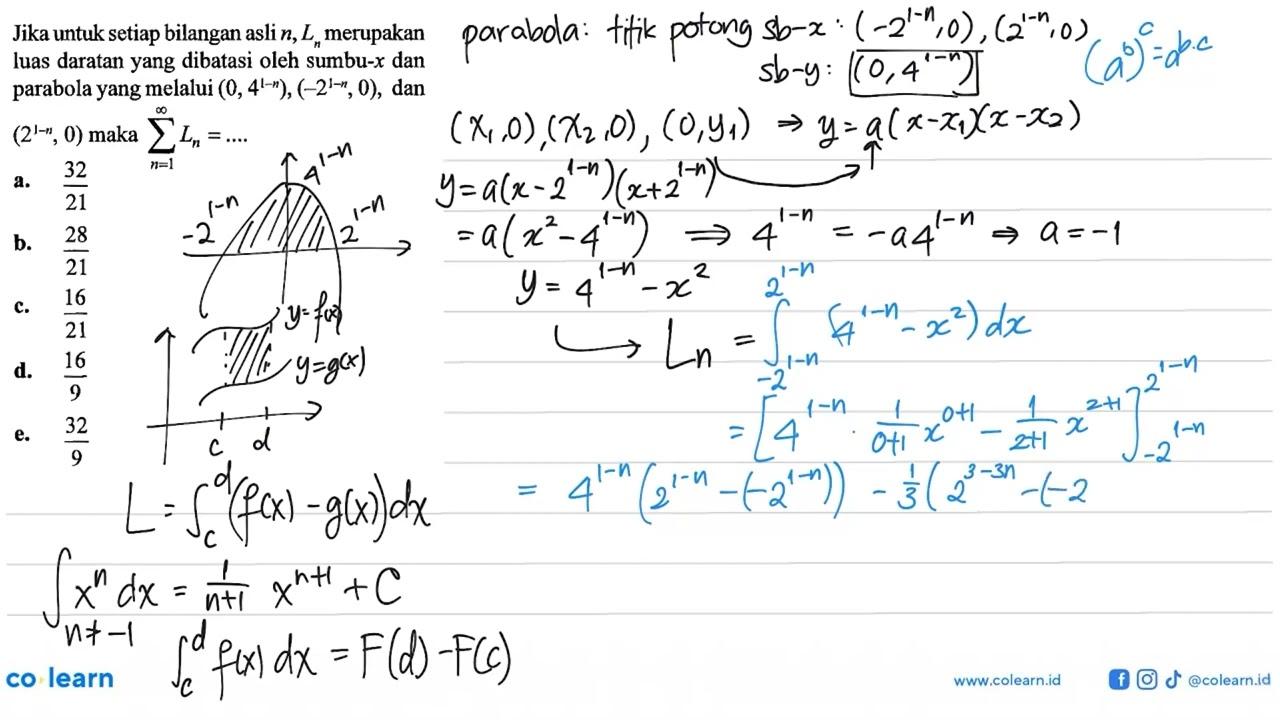 Jika untuk setiap bilangan asli n, Lₙ merupakan
luas daratan yang dibatasi oleh sumbu-x dan
parabola yang melalui (0, 4¹⁻ⁿ), (−2¹⁻ⁿ, 0), dan
(2¹⁻ⁿ, 0) maka ∑_{n=1}^{∞} Lₙ = ....
a. 32/21
b. 28/21
c. 16/21
d. 16/9
e. 32/9
4^{1-n}
-2^{1-n} 2^{1-n}
y=f(x)
y=g(x)
c d
L = ∫_c^d (f(x) - g(x)) dx
∫ x^n dx = 1/(n+1) x^{n+1} + C
n ≠ -1
∫_c^d f(x) dx = F(d) - F(c)
parabola: titik potong sb-x : (-2^{1-n}, 0), (2^{1-n}, 0)
sb-y: (0, 4^{1-n})
(a^b)^c = a^{b.c}
(x₁, 0), (x₂, 0), (0, y₁) ⇒ y = a(x-x₁)(x-x₂)
y = a(x - 2^{1-n})(x + 2^{1-n})
= a(x² - 4^{1-n}) ⟹ 4^{1-n} = -a4^{1-n} ⇒ a = -1
y = 4^{1-n} - x²
Lₙ = ∫_{-2^{1-n}}^{2^{1-n}} (4^{1-n} - x²) dx
= [4^{1-n} . 1/(0+1) x^{0+1} - 1/(2+1) x^{2+1}]_{-2^{1-n}}^{2^{1-n}}
= 4^{1-n} (2^{1-n} - (-2^{1-n})) - 1/3 (2^{3-3n} - (-2
co learn
www.colearn.id @colearn.id